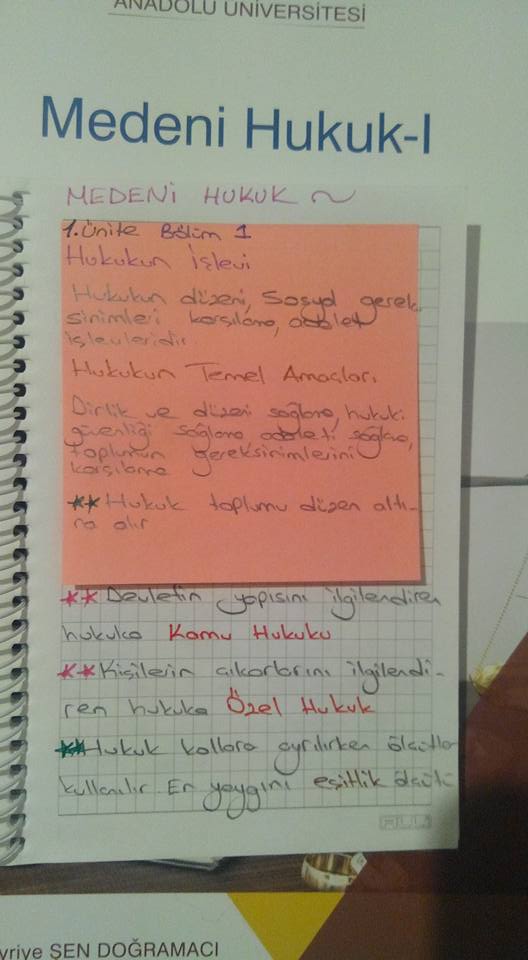 ANADOLU ÜNİVERSİTESİ
Medeni Hukuk-I
MEDENİ HUKUK ~
1.Ünite Bölüm 1
Hukukun İşlevi
Hukukun düzeni, Sosyal gerek
sinimleri karşılama, adalet
işlevleridir
Hukukun Temel Amaçları
Dirlik ve düzeni sağlama, hukuki
güvenliği sağlama, adaleti sağlama,
toplumun gereksinimlerini
karşılama
** Hukuk toplumu düzen altı-
na alır
** Devletin yapısını ilgilendiren
hukuka Kamu Hukuku
** Kişilerin çıkarlarını ilgilendi-
ren hukuka Özel Hukuk
** Hukuk kollara ayrılırken ölçütler
kullanılır En yaygını eşitlik ölçütü
vriye ŞEN DOĞRAMACI